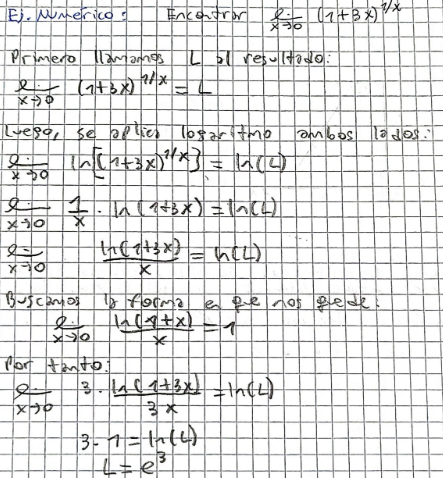 Ej. Numérico: Encontrar ℓ. x→0 (1+3x)^1/x
Primero llamamos L al resultado:
ℓ. x→0 (1+3x)^1/x = L
Luego, se aplica logaritmo ambos lados:
ℓ. x→0 ln[(1+3x)^1/x] = ln(L)
ℓ. x→0 1/x · ln(1+3x) = ln(L)
ℓ. x→0 ln(1+3x)/x = ln(L)
Buscamos la forma en que nos quede:
ℓ. x→0 ln(1+x)/x = 1
Por tanto:
ℓ. x→0 3 · ln(1+3x)/3x = ln(L)
3·1 = ln(L)
L = e^3